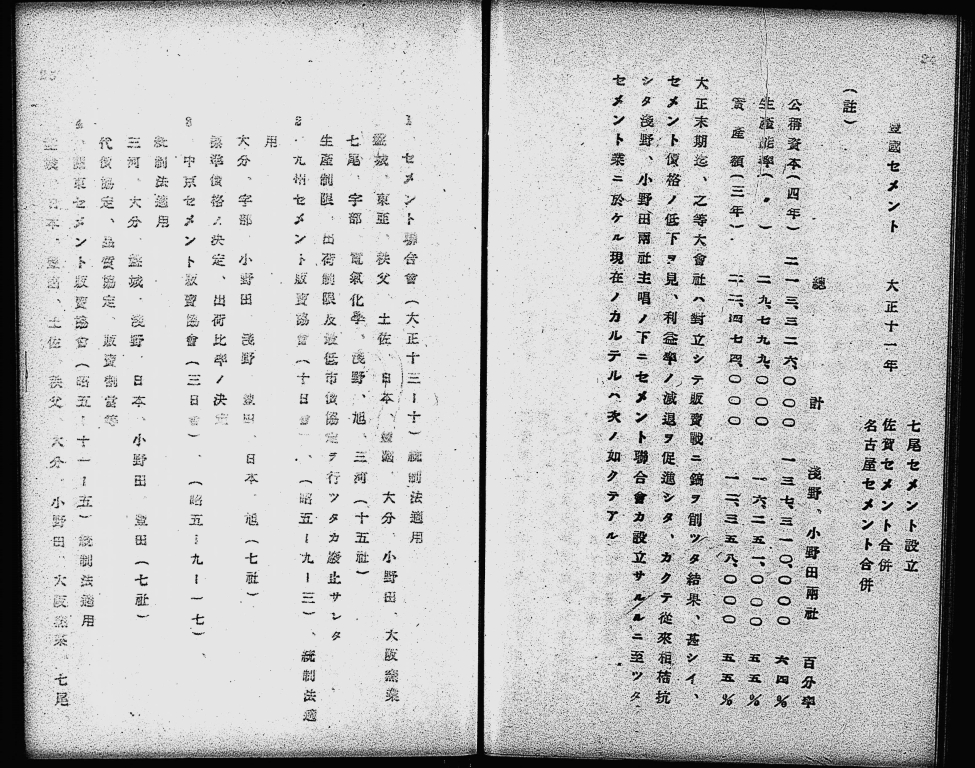 七尾セメント設立
豊國セメント 大正十一年 佐賀セメント合併
名古屋セメント合併
(註)
總 計 淺野、小野田兩社 百分率
公稱資本(四年) 二一三、三二六、〇〇〇 一三七、三一〇、〇〇〇 六四%
生產能率( 〃 ) 二九、七九九、〇〇〇 一六、二五一、〇〇〇 五五%
實產額(三年) 二二、四七四、〇〇〇 一二、三五八、〇〇〇 五五%
大正末期迄、之等大會社ハ對立シテ販賣戰ニ鎬ヲ削ツタ結果、甚シイ、
セメント價格ノ低下ヲ見、利益率ノ減退ヲ促進シタ、カクテ從來相拮抗
シタ淺野、小野田兩社主唱ノ下ニセメント聯合會カ設立サルルニ至ツタ
セメント業ニ於ケル現在ノカルテルハ次ノ如クテアル
1 セメント聯合會(大正十三ー十)統制法適用
盤城、東亞、秩父、土佐、日本、 大分、小野田、大阪窯業
七尾、宇部、電氣化學、淺野、旭、三河(十五社)
生產制限、出荷制限及最低市價協定ヲ行ツタカ廢止サレタ
2、九州セメント販賣協會(十日會)、(昭五ー九ー三)、統制法適
用
大分、宇部、小野田、淺野、豊田、日本、旭(七社)
標準價格ノ決定、出荷比率ノ決定
3 中京セメント販賣協會(三日會)、(昭五ー九ー一七)、
統制法適用
三河、大分、盤城、淺野、日本、小野田、豊田(七社)
代價協定、品質協定、販賣割當等
4、關東セメント販賣協會(昭五ー十一ー五)統制法適用
盤城、日本、 土佐、秩父、大分、小野田、大阪窯業、七尾